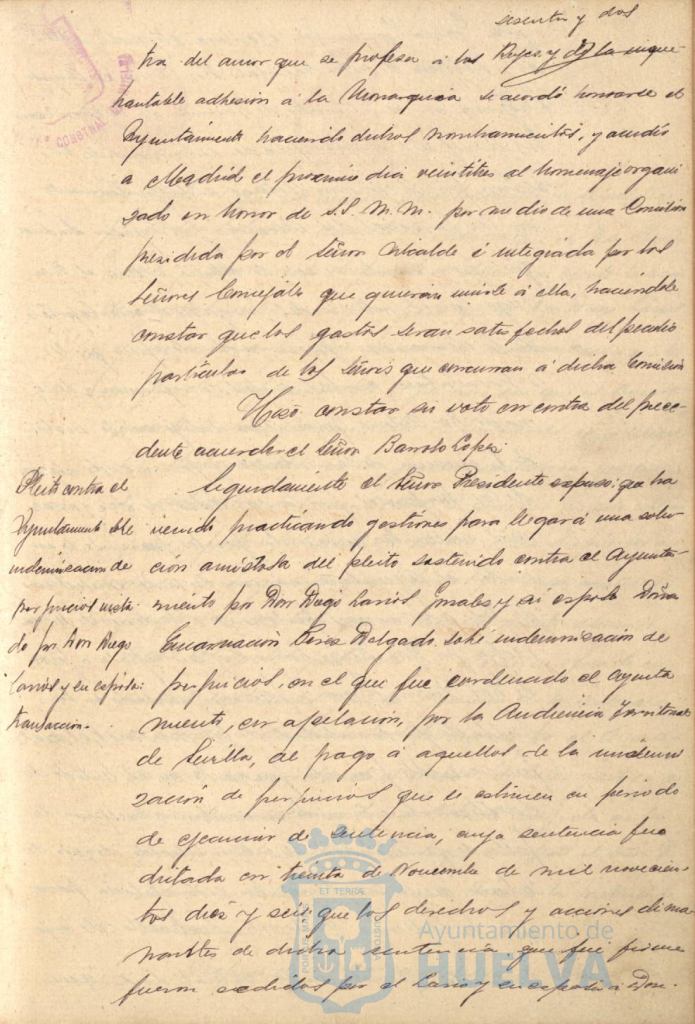 sesenta y dos
tra del amor que se profesa á los Reyes y de la inque-
brantable adhesión á la Monarquia se acordó honrarse el
Ayuntamiento haciendo dichos nombramientos, y acudir
a Madrid el proximo dia veintitres al homenaje organi
zado en honor de S.S. M.M. por medio de una Comision
presidida por el Señor Alcalde é integrada por los
Señores Concejales que quieran unirse á ella, haciendose
constar que los gastos seran satisfechos del peculio
particular de los Señores que concurran á dicha Comision
Hizo constar su voto en contra del prece-
dente acuerdo el Señor Barroso Lopez.
Pleito contra el
Ayuntamiento sobre
indemnizacion de
perjuicios insta-
do por Don Diego
Larios y su esposa:
transacción.
Seguidamente el Señor Presidente expuso: que ha
viendo practicando gestiones para llegar á una solu-
ción amistosa del pleito sostenido contra el Ayunta-
miento por Don Diego Larios y su esposa Doña
Encarnación Perez Delgado, sobre indemnización de
perjuicios, en el que fue condenado el Ayunta
miento, en apelación, por la Audiencia Territorial
de Sevilla, al pago á aquellos de la indemni
zación de perjuicios que se estimen en periodo
de ejecución de sentencia, cuya sentencia fué
dictada en treinta de Noviembre de mil novecien-
tos diez y seis; que los derechos y acciones dima-
nantes de dicha sentencia que fué firme
fueron cedidos por el Larios y su esposa á Don
ET TERRÆ
Ayuntamiento de
HUELVA